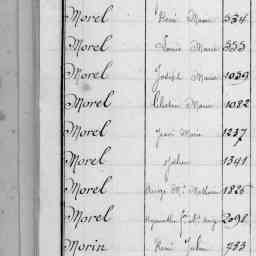 Morel René Marie 534
Morel Louis Marie 355
Morel Joseph Marie 1039
Morel Célestin Marie 1082
Morel Jean Marie 1237
Morel Julien 1341
Morel Ange Mie Mathurin 1825
Morel 2098
Morin René Julien 983